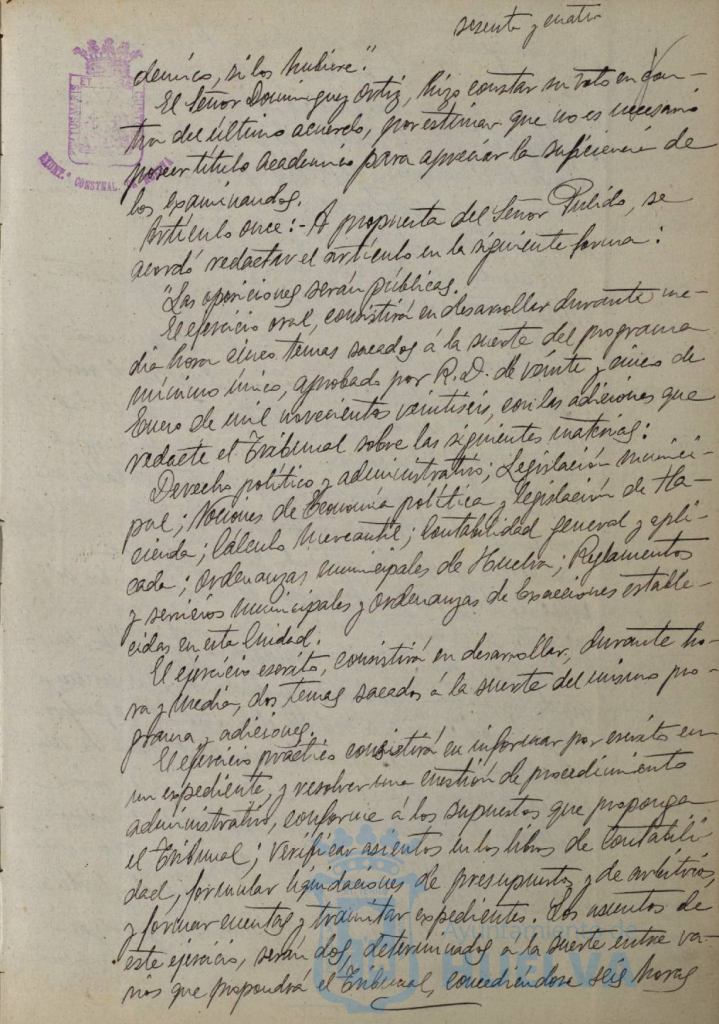 sesenta y cuatro
démico, si los hubiere."
El Señor Dominguez Ortiz, hizo constar su voto en con-
tra del último acuerdo, por estimar que no es necesario
poseer título Académico para apreciar la suficiencia de
los examinandos.
Artículo once:- A propuesta del Señor Pulido, se
acordó redactar el artículo en la siguiente forma:
"Las oposiciones serán públicas.
El ejercicio oral, consistirá en desarrollar durante me-
dia hora cinco temas sacados á la suerte del programa
mínimo único, aprobado por R.D. de veinte y cinco de
Enero de mil novecientos veintiseis, con las adiciones que
redacte el Tribunal sobre las siguientes materias:
Derecho político y administrativo; Legislación munici-
pal; Nociones de Economía política y legislación de Ha-
cienda; Cálculo Mercantil; Contabilidad general y apli-
cada; Ordenanzas municipales de Huelva; Reglamentos
y servicios municipales y Ordenanzas de Exacciones estable-
cidas en esta Ciudad.
El ejercicio escrito, consistirá en desarrollar, durante ho-
ra y media, dos temas sacados á la suerte del mismo pro-
grama y adiciones.
El ejercicio práctico consistirá en informar por escrito en
un expediente, y resolver una cuestión de procedimiento
administrativo, conforme á los supuestos que proponga
el Tribunal; verificar asientos en los libros de Contabili-
dad, formular liquidaciones de presupuestos y de arbitrios,
y formar cuentas y tramitar expedientes. Los asuntos de
este ejercicio, serán dos, determinados á la suerte entre va-
rios que propondrá el Tribunal, concediéndose seis horas
AYUNT.º CONSTNAL. DE HUELVA
Ayuntamiento de
HUELVA